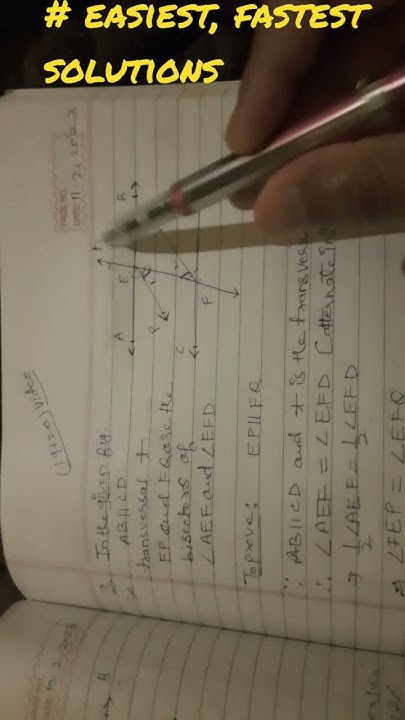 # EASIEST, FASTEST
SOLUTIONS
PAGE NO.
DATE 11.2.2023
(19+20) Video
In the given fig.
AB||CD
transversal t
EP and FQ are the
bisectors of
∠AEF and ∠EFD
To prove: EP||FQ
A
E
B
t
P
C
F
∵ AB||CD and t is the transvers
∴ ∠AEF = ∠EFD (alternate in
⇒ 1/2 ∠AEF = 1/2 ∠EFD
⇒ ∠FEP = ∠EFQ
DATE 10.2.2023
B